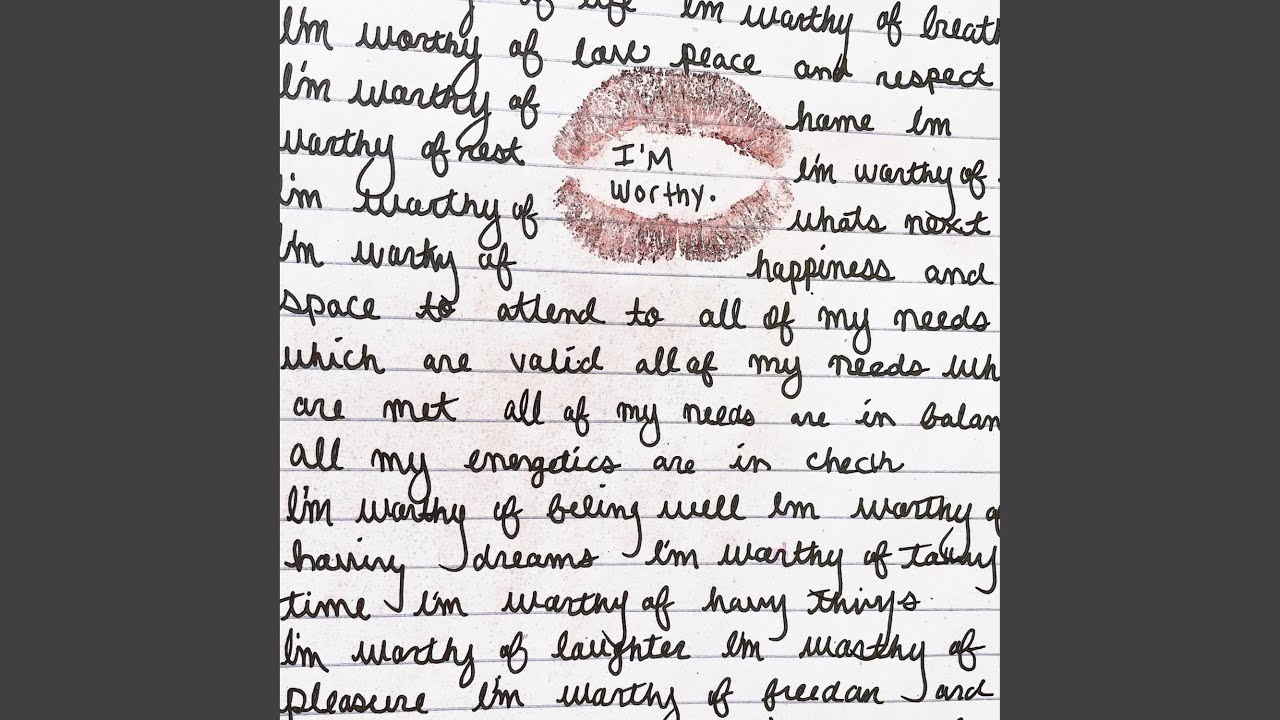 of life I'm worthy of breath
I'm worthy of love peace and respect
I'm worthy of home I'm
worthy of rest I'm worthy of
I'M
Worthy.
I'm worthy of whats next
I'm worthy of happiness and
space to attend to all of my needs
which are valid all of my needs wh
are met all of my needs are in balan
all my energetics are in check
I'm worthy of being well Im worthy of
having dreams I'm worthy of taking
time I'm worthy of having things
I'm worthy of laughter I'm worthy of
pleasure I'm worthy of freedom and